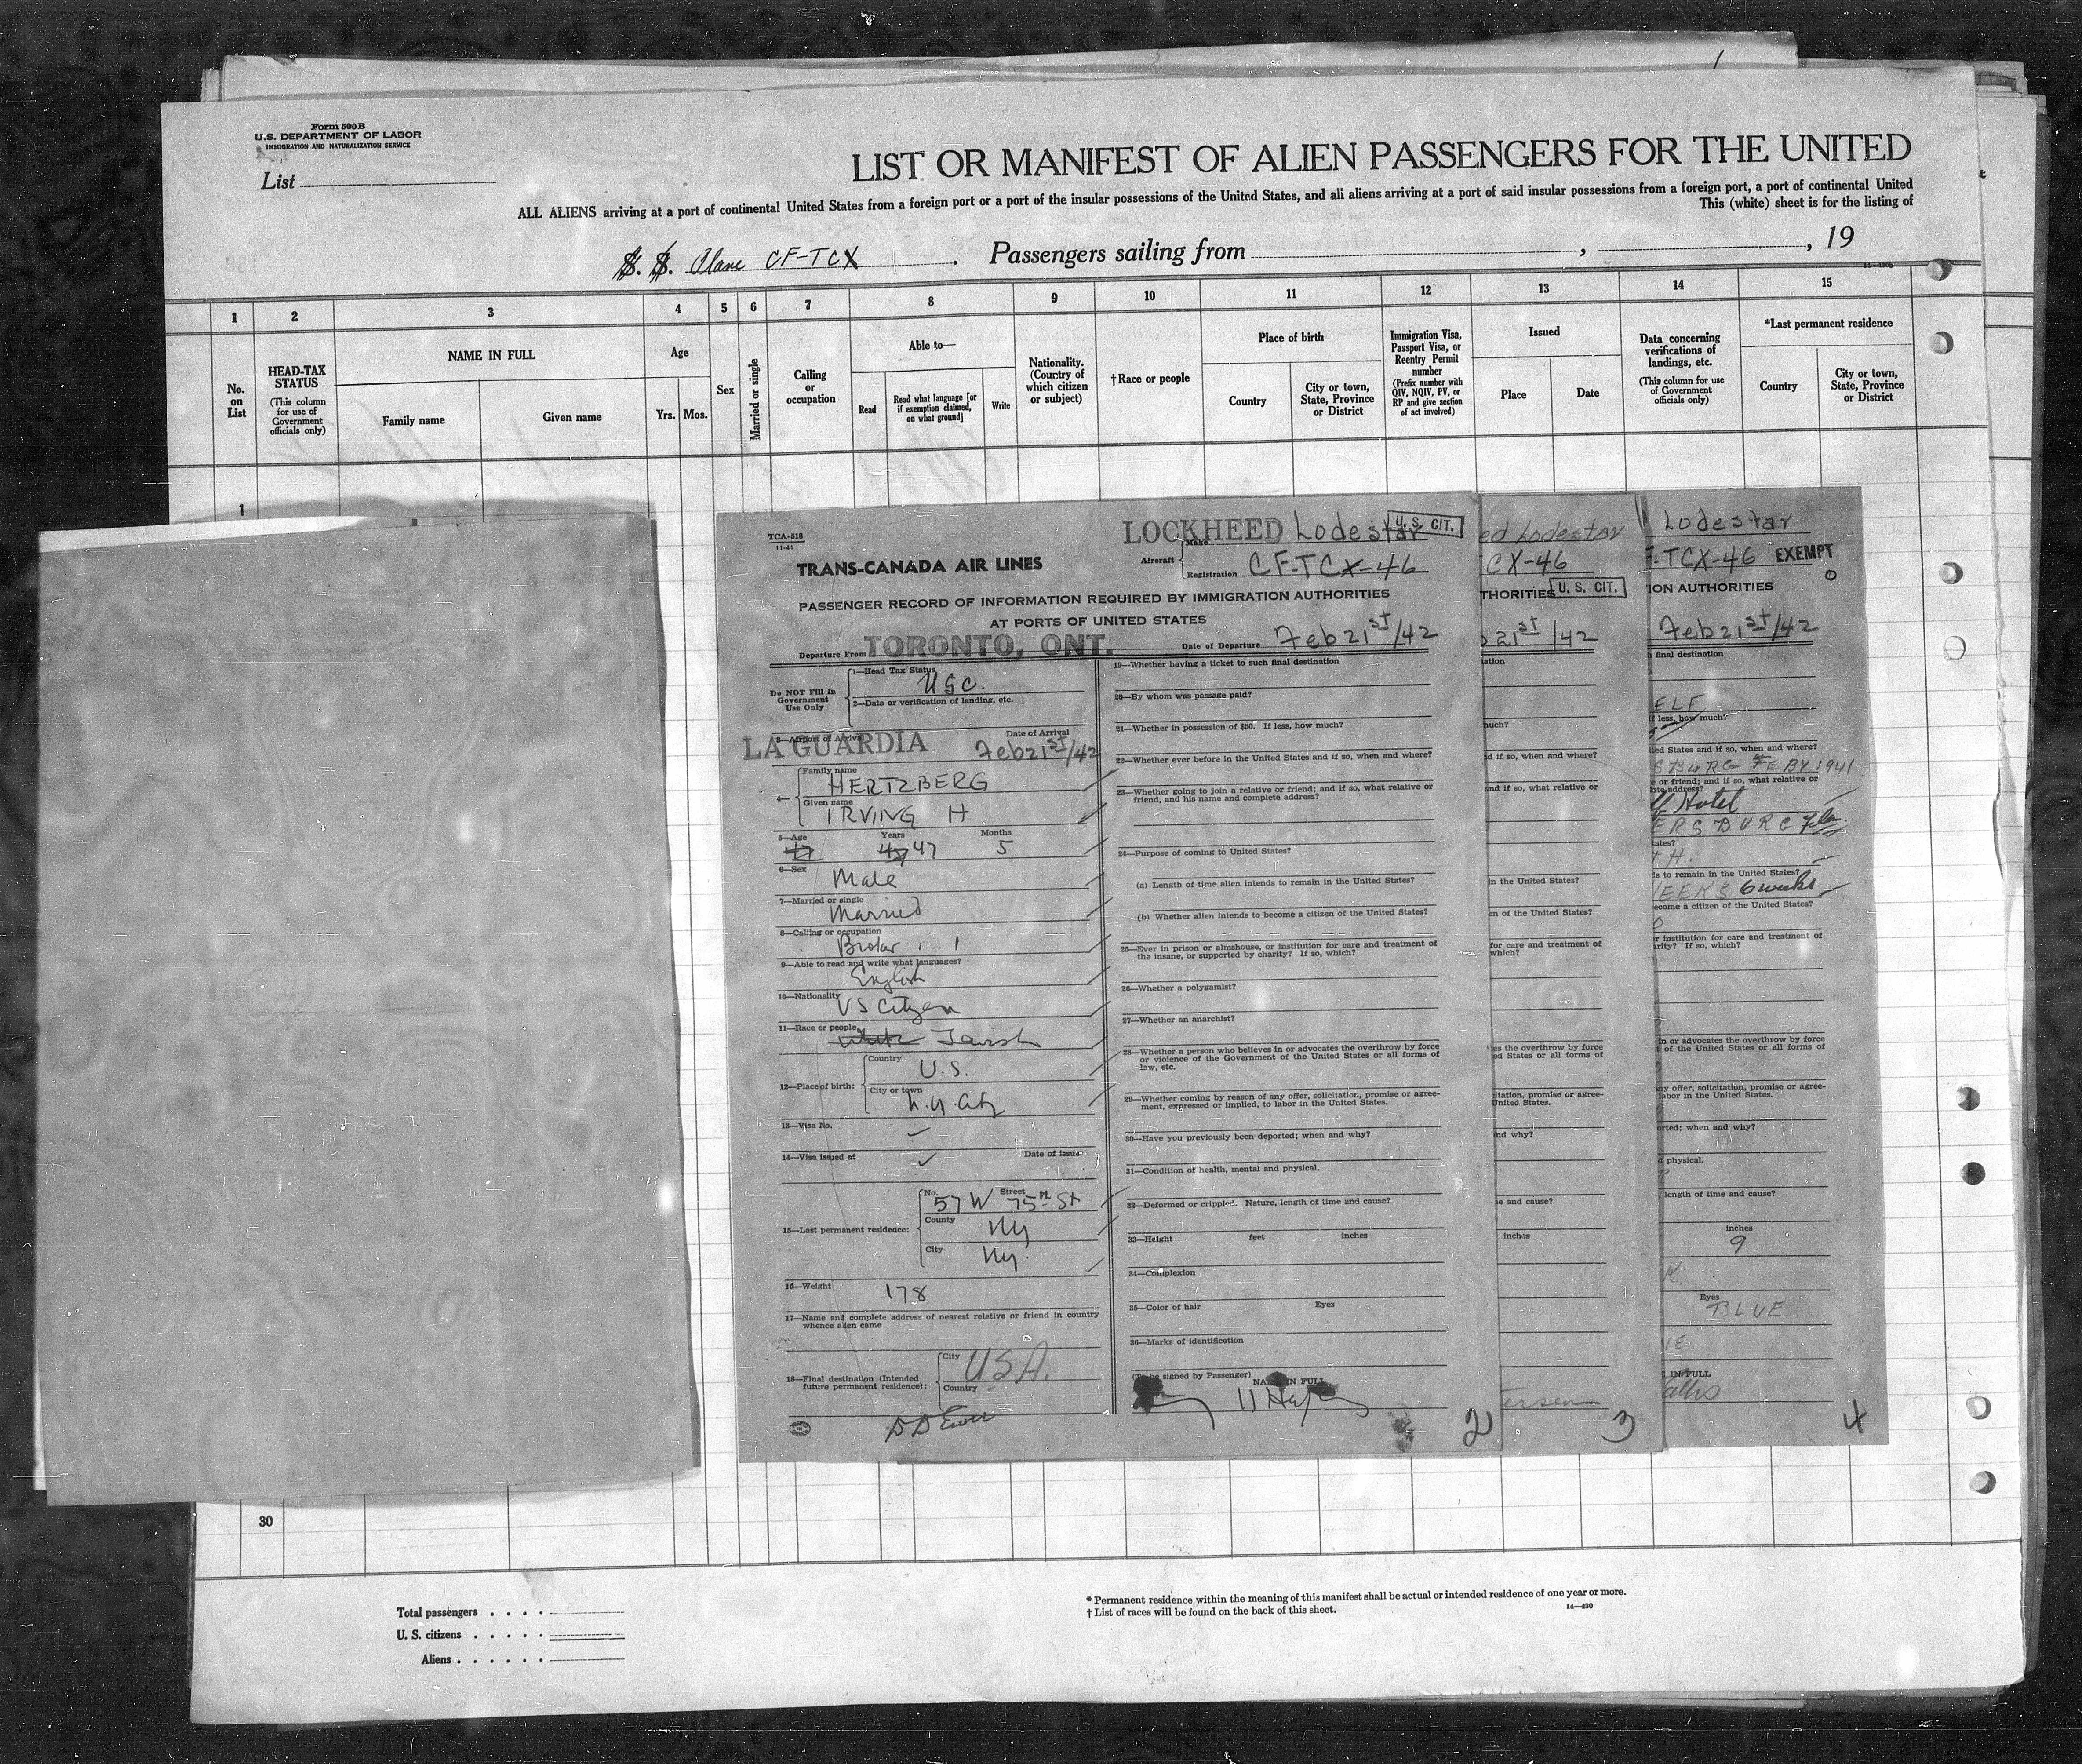 Form 500 B
U.S. DEPARTMENT OF LABOR
IMMIGRATION AND NATURALIZATION SERVICE
List
LIST OR MANIFEST OF ALIEN PASSENGERS FOR THE UNITED
ALL ALIENS arriving at a port of continental United States from a foreign port or a port of the insular possessions of the United States, and all aliens arriving at a port of said insular possessions from a foreign port, a port of continental United
This (white) sheet is for the listing of
S. S. Plane CF-TCX . Passengers sailing from , , 19
1 2 3 4 5 6 7 8 9 10 11 12 13 14 15
No. on List
HEAD-TAX STATUS
(This column for use of Government officials only)
NAME IN FULL
Family name
Given name
Age
Yrs. Mos.
Sex
Married or single
Calling or occupation
Able to—
Read
Read what language [or if exemption claimed, on what ground]
Write
Nationality. (Country of which citizen or subject)
†Race or people
Place of birth
Country
City or town, State, Province or District
Immigration Visa, Passport Visa, or Reentry Permit number
(Prefix number with QIV, NQIV, PV, or RP and give section of act involved)
Issued
Place
Date
Data concerning verifications of landings, etc.
(This column for use of Government officials only)
*Last permanent residence
Country
City or town, State, Province or District
1
TCA-518
11-41
TRANS-CANADA AIR LINES
Aircraft
Make
LOCKHEED Lodestar
U. S. CIT.
Registration CF-TCX-46
PASSENGER RECORD OF INFORMATION REQUIRED BY IMMIGRATION AUTHORITIES
AT PORTS OF UNITED STATES
Departure From TORONTO, ONT.
Date of Departure Feb 21st/42
Do NOT Fill In Government Use Only
1—Head Tax Status
USC.
2—Data or verification of landing, etc.
3—Airport of Arrival
Date of Arrival
LA GUARDIA Feb 21st/42
4—
Family name
HERTZBERG
Given name
IRVING H
5—Age Years Months
47 47 5
6—Sex
Male
7—Married or single
Married
8—Calling or occupation
Broker
9—Able to read and write what languages?
English
10—Nationality
US Citizen
11—Race or people
white Jewish
12—Place of birth:
Country
U.S.
City or town
N.Y City
13—Visa No.
14—Visa issued at Date of issue
15—Last permanent residence:
No. Street
57 W 75th St
County
NY
City
NY.
16—Weight
178
17—Name and complete address of nearest relative or friend in country
whence alien came
18—Final destination (Intended
future permanent residence):
City
USA.
Country
19—Whether having a ticket to such final destination
20—By whom was passage paid?
21—Whether in possession of $50. If less, how much?
22—Whether ever before in the United States and if so, when and where?
23—Whether going to join a relative or friend; and if so, what relative or
friend, and his name and complete address?
24—Purpose of coming to United States?
(a) Length of time alien intends to remain in the United States?
(b) Whether alien intends to become a citizen of the United States?
25—Ever in prison or almshouse, or institution for care and treatment of
the insane, or supported by charity? If so, which?
26—Whether a polygamist?
27—Whether an anarchist?
28—Whether a person who believes in or advocates the overthrow by force
or violence of the Government of the United States or all forms of
law, etc.
29—Whether coming by reason of any offer, solicitation, promise or agree-
ment, expressed or implied, to labor in the United States.
30—Have you previously been deported; when and why?
31—Condition of health, mental and physical.
32—Deformed or crippled. Nature, length of time and cause?
33—Height feet inches
34—Complexion
35—Color of hair Eyes
36—Marks of identification
(To be signed by Passenger) NAME IN FULL
2
ed Lodestar
CX-46
THORITIES
U. S. CIT.
21st/42
ation
much?
d if so, when and where?
and if so, what relative or
in the United States?
en of the United States?
for care and treatment of
which?
es the overthrow by force
ed States or all forms of
itation, promise or agree-
United States.
nd why?
e and cause?
inches
ersen
3
Lodestar
F-TCX-46 EXEMPT
ION AUTHORITIES
Feb 21st/42
final destination
ELF
If less, how much?
ted States and if so, when and where?
SBURG FEBY 1941
or friend; and if so, what relative or
ete address?
Hotel
ERSBURG Fla.
tates?
TH.
ds to remain in the United States?
WEEKS 6 weeks
ecome a citizen of the United States?
or institution for care and treatment of
arity? If so, which?
in or advocates the overthrow by force
of the United States or all forms of
ny offer, solicitation, promise or agree-
labor in the United States.
rted; when and why?
d physical.
length of time and cause?
inches
9
K.
Eyes
BLUE
NE
E IN FULL
4
30
Total passengers
U. S. citizens
Aliens
* Permanent residence within the meaning of this manifest shall be actual or intended residence of one year or more.
† List of races will be found on the back of this sheet.
14—430